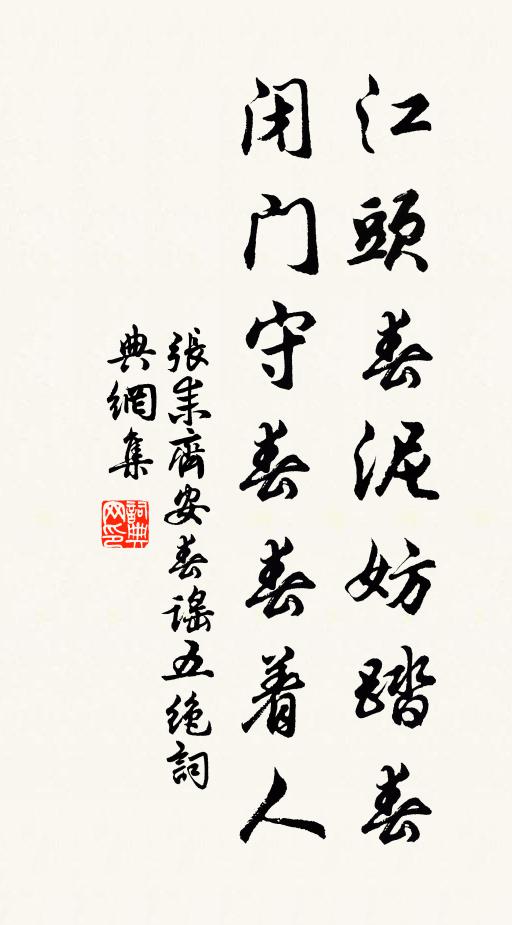 江頭春泥妨踏春
閉門守春春着人
張耒齊安春謠五絶詞
典網集
詞典
网印